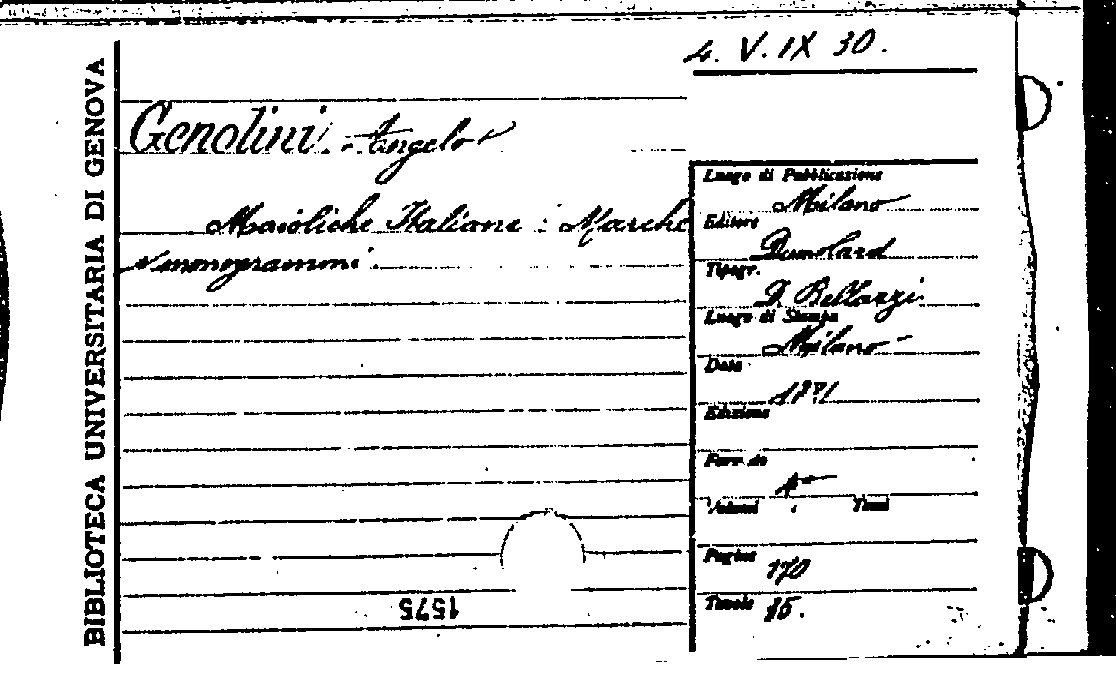 4. V. IX 30.
BIBLIOTECA UNIVERSITARIA DI GENOVA
Genolini Angelo
Maioliche Italiane : Marche
e monogrammi.
Luogo di Pubblicazione
Milano
Editore
Dumolard
Tipogr.
D. Bellazzi
Luogo di Stampa
Milano
Data
Edizione
Formato
4°
Volumi Tomi
Pagine
170
Tavole
15.
1575